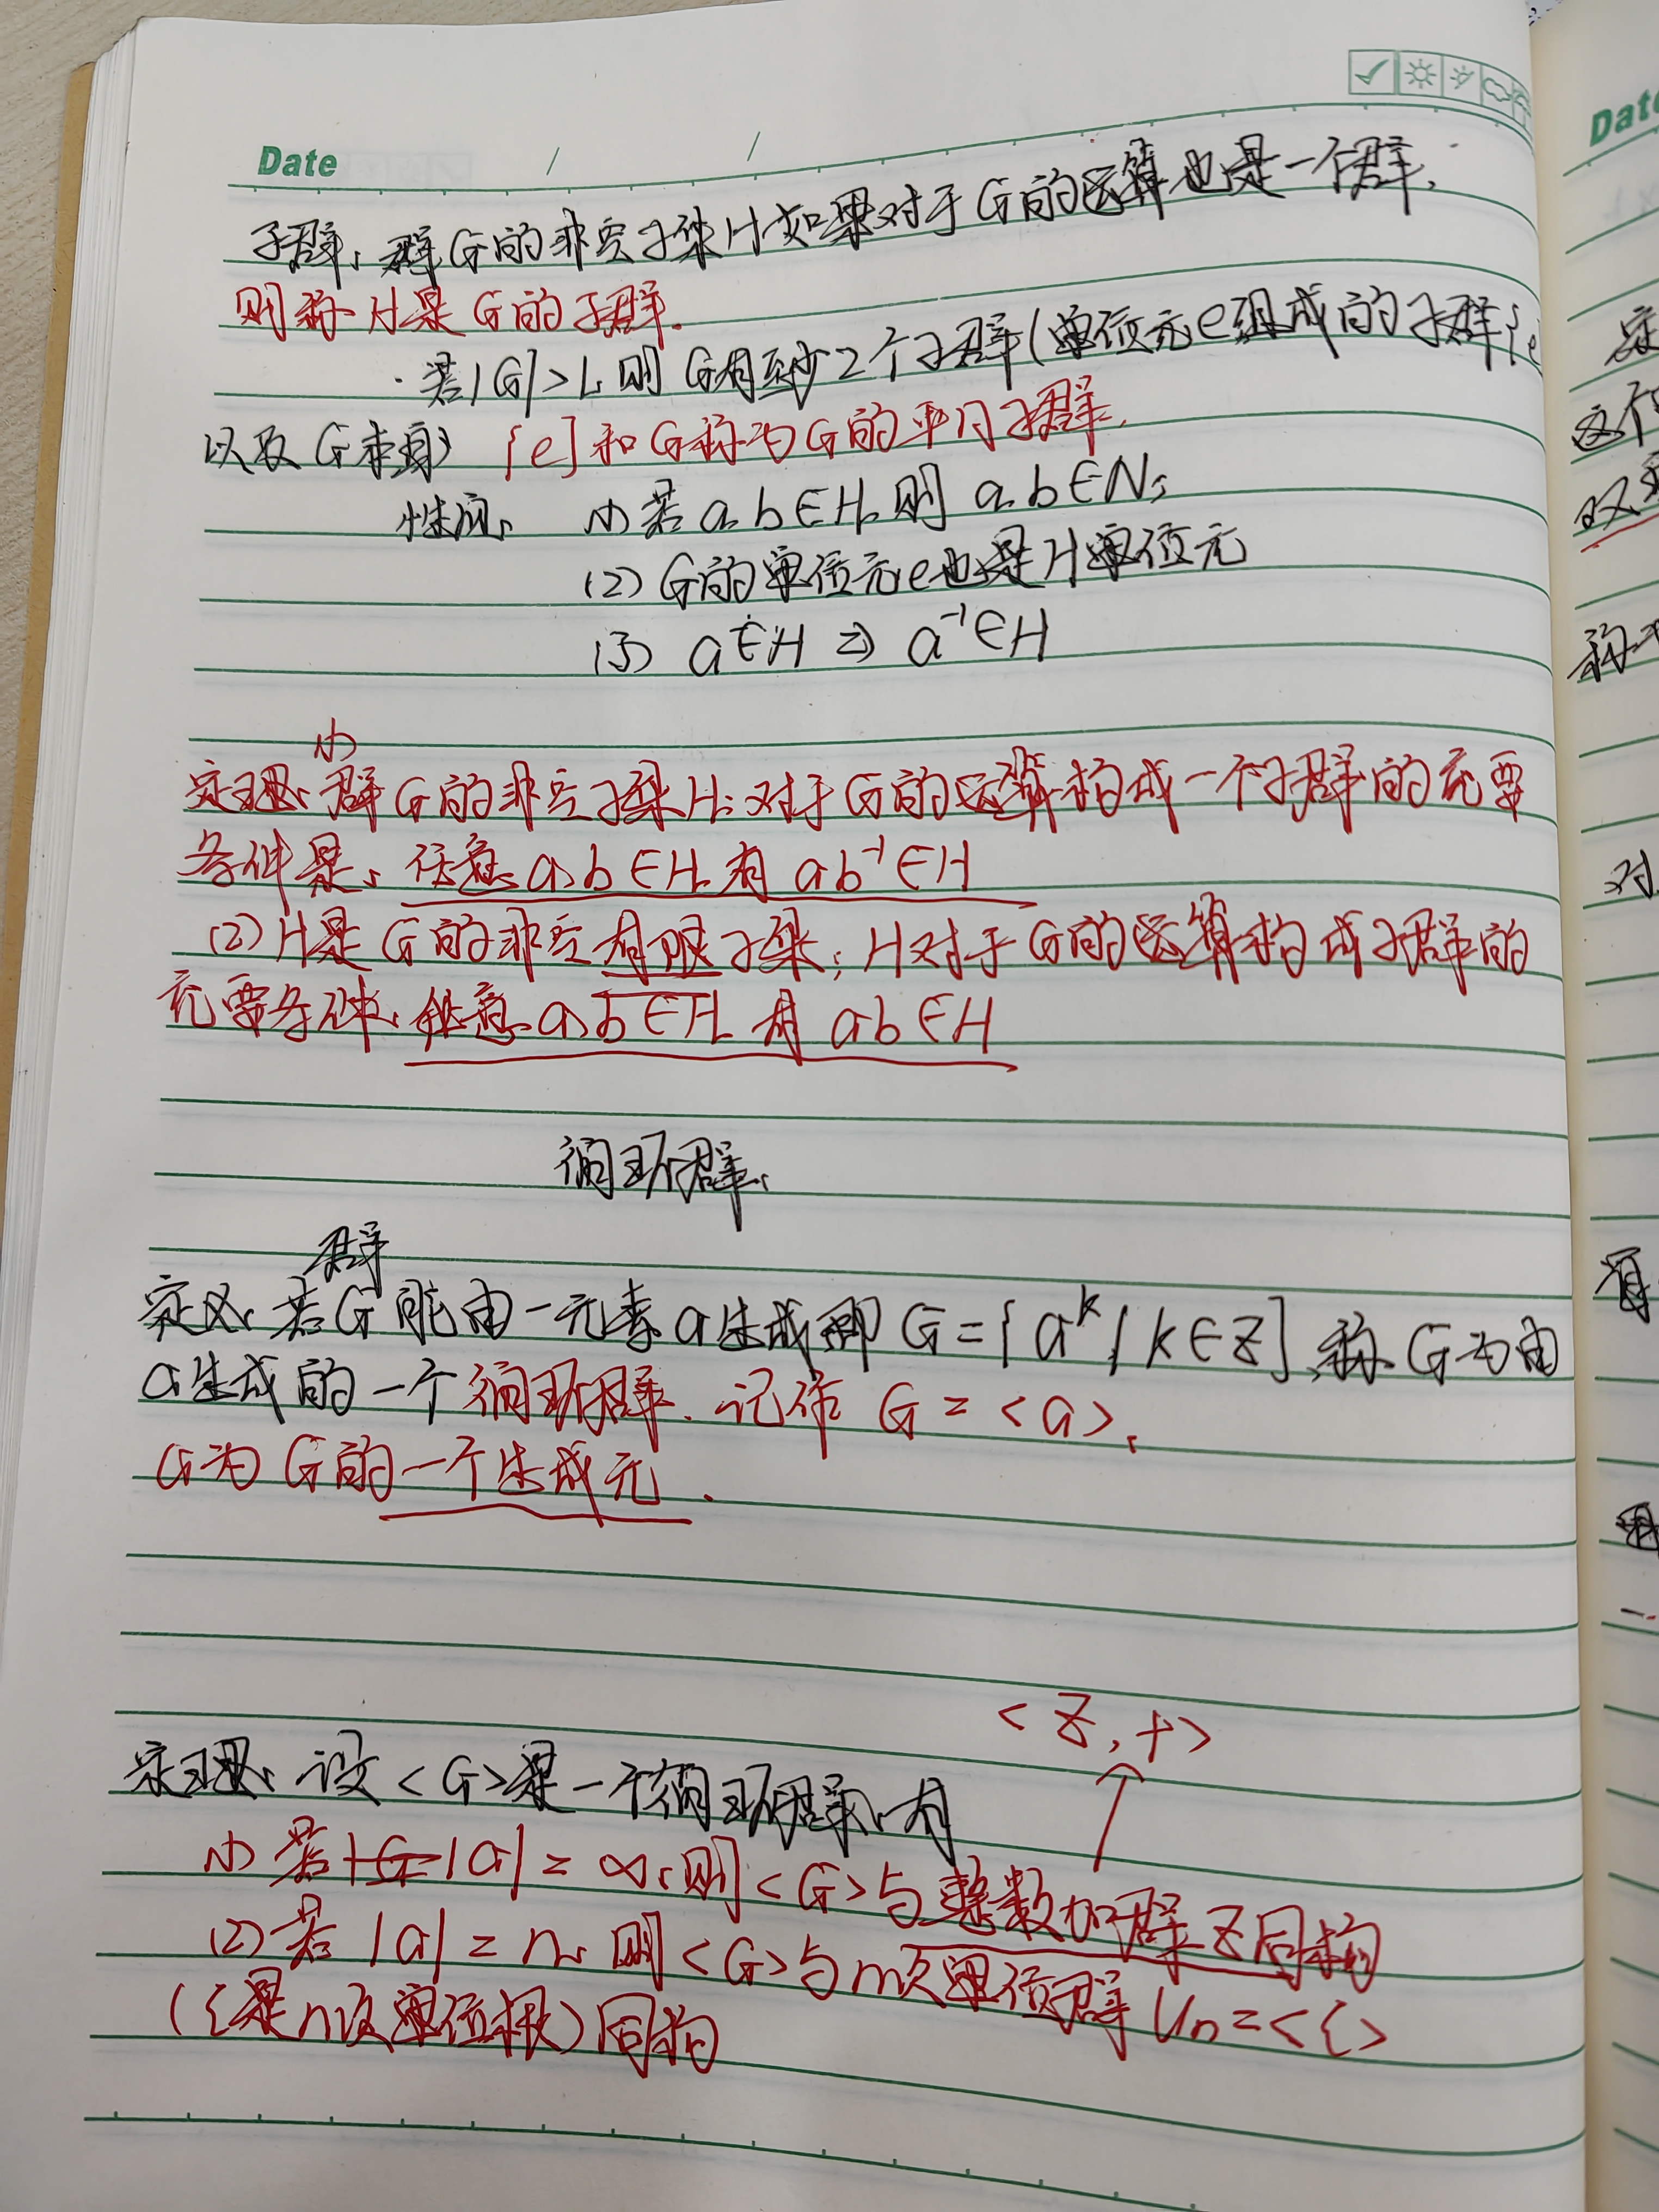 Date / /
子群、群G的非空子集H如果对于G的运算也是一个群,
则称H是G的子群.
· 若|G|>1, 则G有至少2个子群(单位元e组成的子群{e
以及G本身) {e}和G称为G的平凡子群.
性质、 (1) 若a,b∈H, 则 a,b∈N;
(2) G的单位元e也是H单位元
(3) a∈H ⇒ a⁻¹∈H
(1)
定理、群G的非空子集H: 对于G的运算构成一个子群的充要
条件是、任意a,b∈H, 有 ab⁻¹∈H
(2) H是G的非空有限子集; H对于G的运算构成子群的
充要条件、任意a,b∈H, 有 ab∈H
循环群、
群
定义、若G能由一元素a生成即 G={a^k | k∈Z}, 称G为由
a生成的一个循环群. 记作 G=<a>,
a为G的一个生成元.
<Z,+>
定理、设<G>是一个循环群、有
(1) 若|a|=∞, 则<G>与整数加群Z同构
(2) 若|a|=n, 则<G>与n次单位群 Un=<ξ>
(ξ是n次单位根)同构
Date
定
这个
双
称
对
有